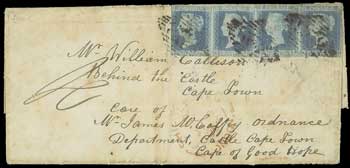 Mr. William Cattison
Behind the Castle
Cape Town
Care of
Mr. James McCoffey Ordnance
Department, Castle Cape Town
Cape of Good Hope